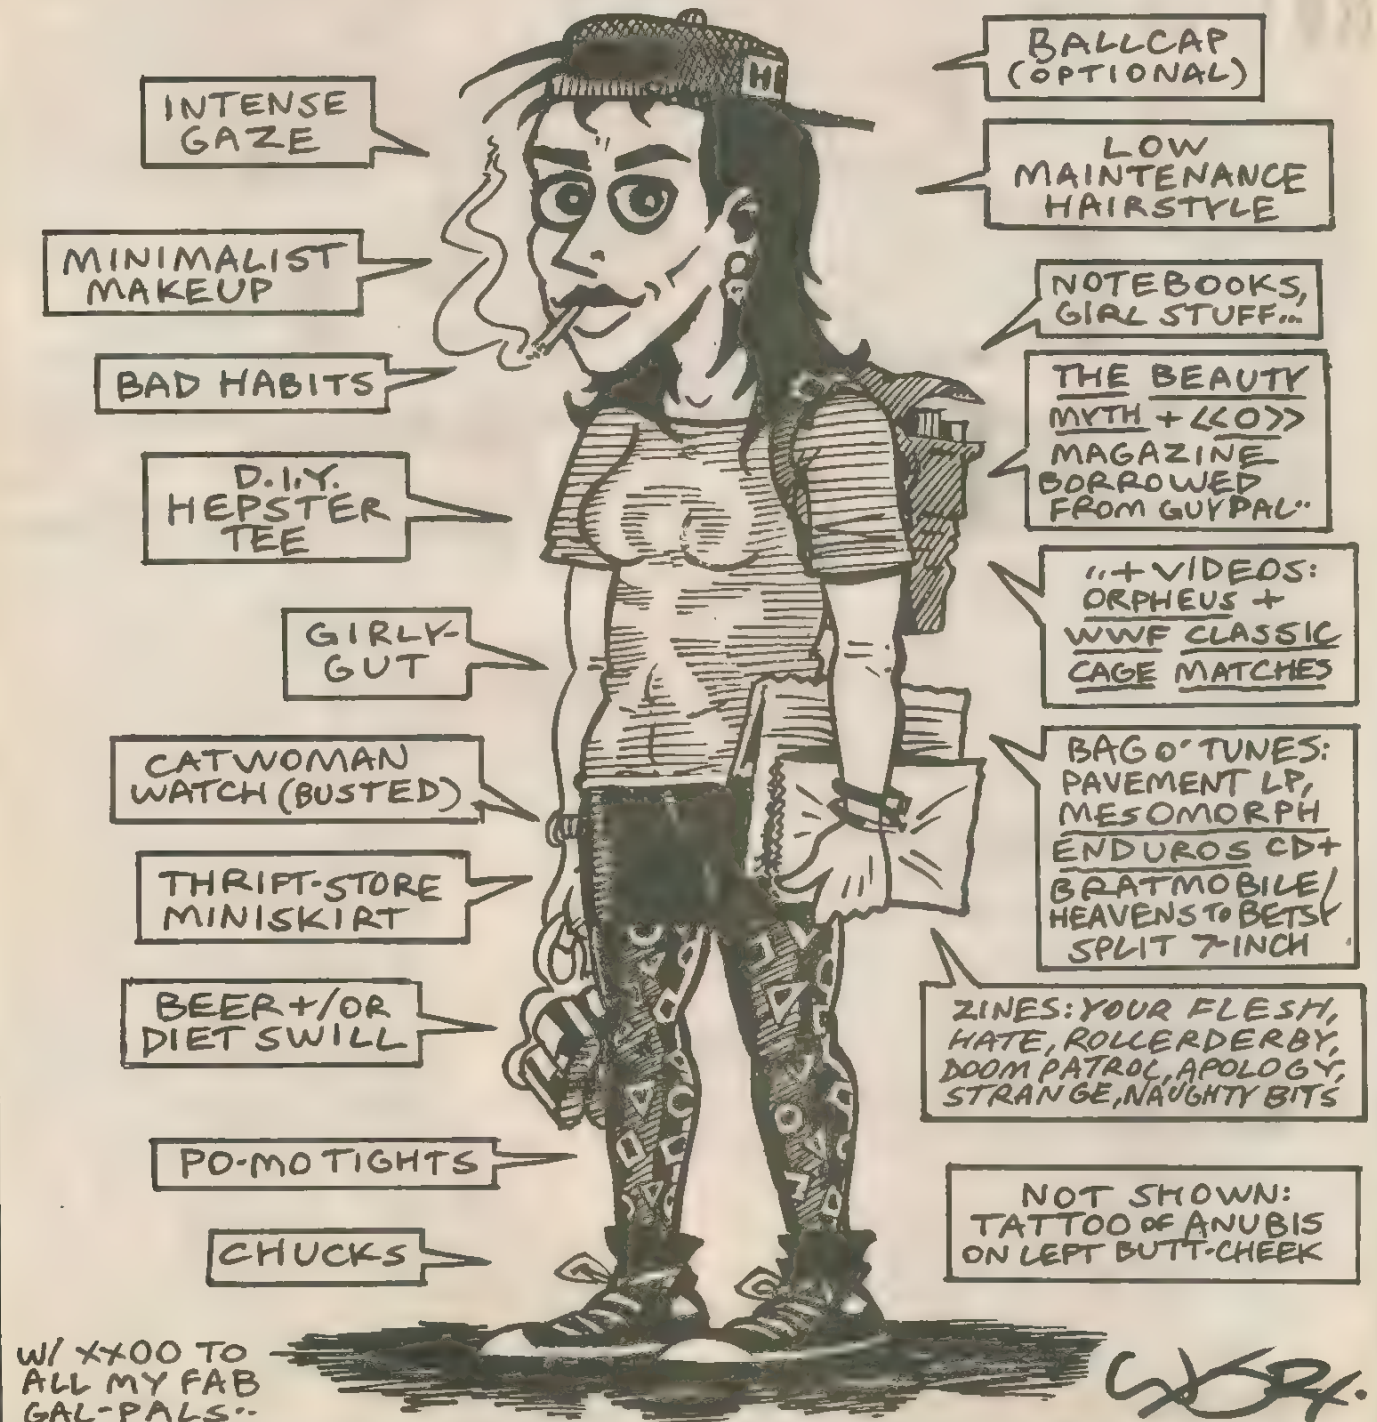 INTENSE
GAZE
MINIMALIST
MAKEUP
BAD HABITS
D.I.Y.
HEPSTER
TEE
GIRLY-
GUT
CATWOMAN
WATCH (BUSTED)
THRIFT-STORE
MINISKIRT
BEER +/OR
DIET SWILL
PO-MO TIGHTS
CHUCKS
W/ XXOO TO
ALL MY FAB
GAL-PALS..
H
BALLCAP
(OPTIONAL)
LOW
MAINTENANCE
HAIRSTYLE
NOTEBOOKS,
GIRL STUFF...
THE BEAUTY
MYTH + <<O>>
MAGAZINE
BORROWED
FROM GUYPAL..
..+ VIDEOS:
ORPHEUS +
WWF CLASSIC
CAGE MATCHES
BAG O' TUNES:
PAVEMENT LP,
MESOMORPH
ENDUROS CD +
BRATMOBILE/
HEAVENS TO BETSY
SPLIT 7-INCH
ZINES: YOUR FLESH,
HATE, ROLLERDERBY,
DOOM PATROL, APOLOGY,
STRANGE, NAUGHTY BITS
NOT SHOWN:
TATTOO OF ANUBIS
ON LEFT BUTT-CHEEK